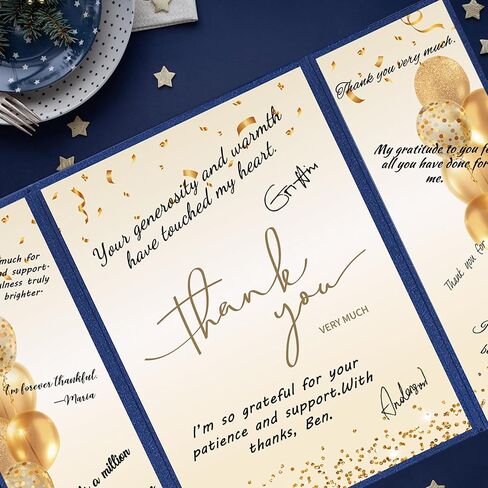 much for
nd support-
ulness truly
brighter-
I'm forever thankful.
—Maria
a million
Your generosity and warmth
have touched my heart.
Griffin
thank
you
VERY MUCH
I'm so grateful for your
patience and support.With
thanks, Ben.
Anderson
Thank you very much.
My gratitude to you f
all you have done for
me.
Thank you for